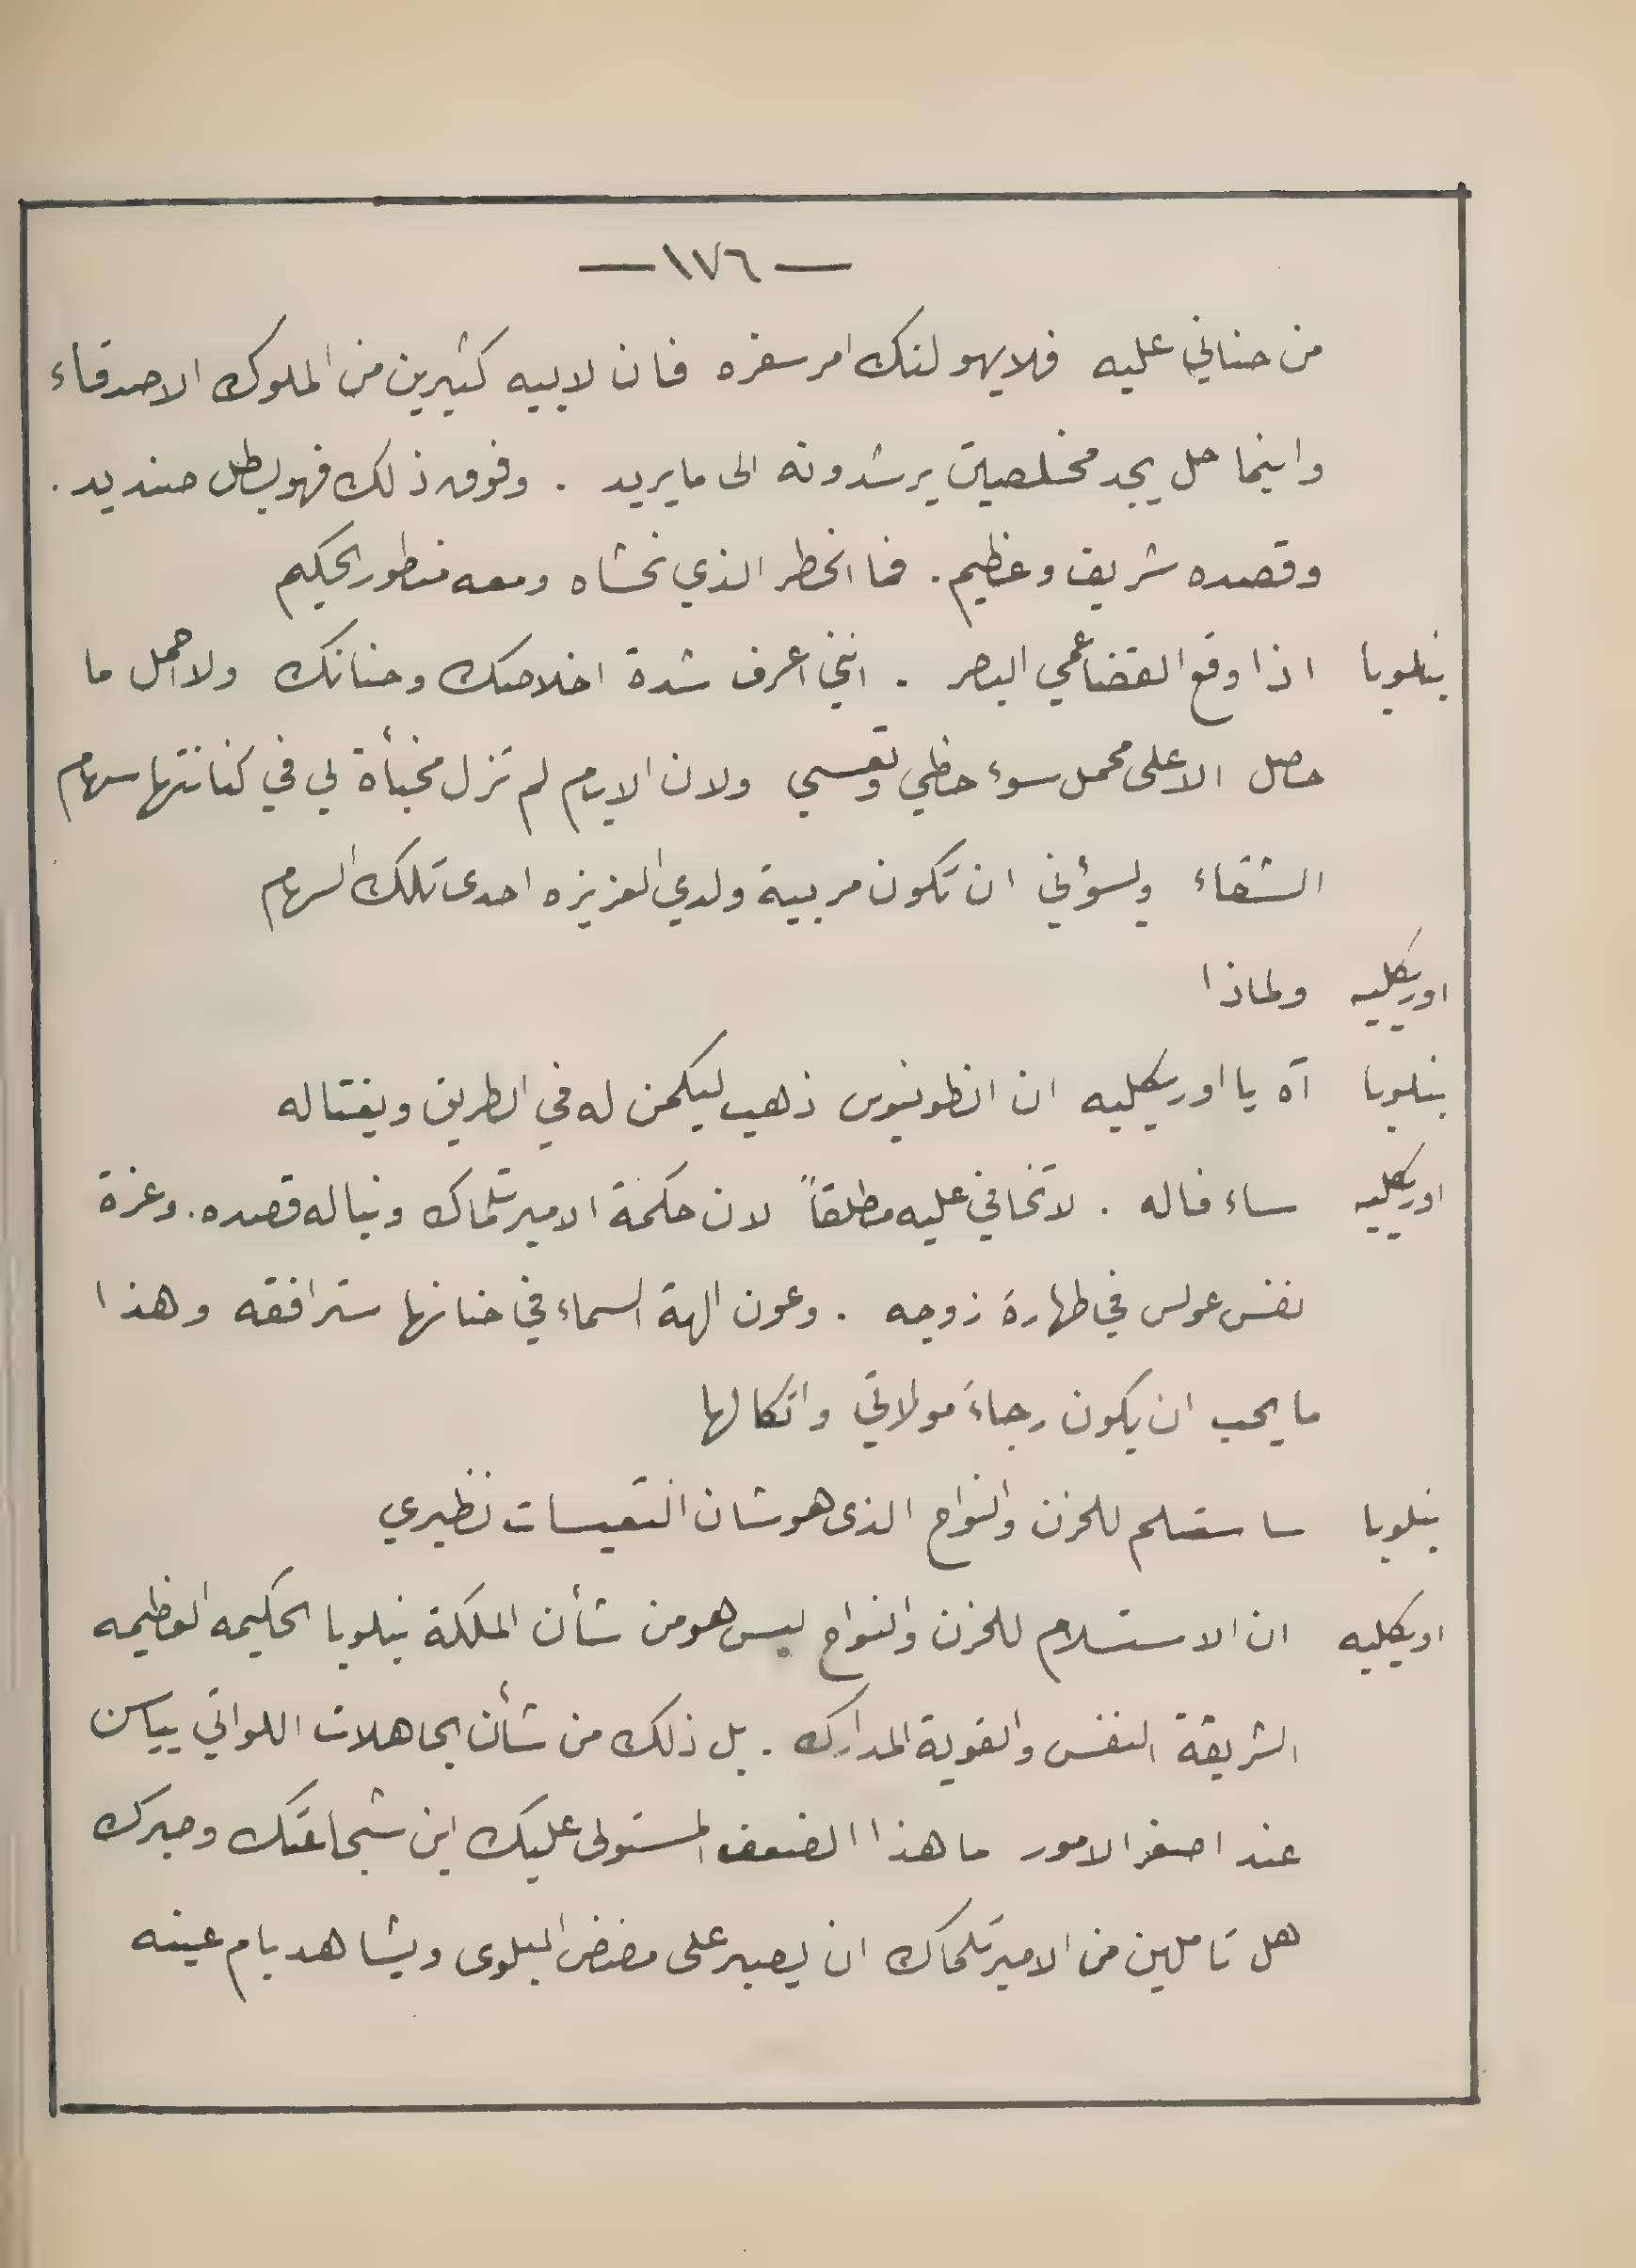 — ١٧٦ —
من حناني عليه فلا يهولنك امر سفره فان لابيه كثيرين من الملوك الاصدقاء
واينما حل يجد مخلصين يرشدونه الى ما يريد . وفوق ذلك فهو بطل صنديد .
وقصده شريف وعظيم . فما الخطر الذي نخشاه ومعه منطور الحكيم
بنلوبا اذا وقع القضا عمي البصر . انني اعرف شدة اخلاصك وحنانك ولا احمل ما
حصل الا على محمل سوء حظي وتعسي ولان الايام لم تزل مخبأة لي في كنانتها سهام
الشقاء ويسؤني ان تكون مربية ولدي العزيزه احدى تلك السهام
اوريكليه ولماذا
بنلوبا آه يا اوريكليه ان انطونيوس ذهب ليكمن له في الطريق ويغتاله
اوريكليه ساء فاله . لا تخافي عليه مطلقاً لان حكمة الامير تلماك ونباله قصده . وعزة
نفس عولس في طهارة زوجه . وعون الهة السماء في حنانها سترافقه وهذا
ما يجب ان يكون رجاءَ مولاتي واتكالها
بنلوبا ساستسلم للحزن والنواح الذى هو شان التعيسات نظيري
اويكليه ان الاستسلام للحزن والنواح ليس هو من شأن الملكة بنلوبا الحكيمه العظيمه
الشريفة النفس والقوية المدارك . بل ذلك من شأن الجاهلات اللواتي ييأسن
عند اصغر الامور ما هذا الضعف المستولى عليك اين شجاعتك وصبرك
هل تاملين من الامير تلماك ان يصبر على مضض البلوى ويشاهد بام عينه